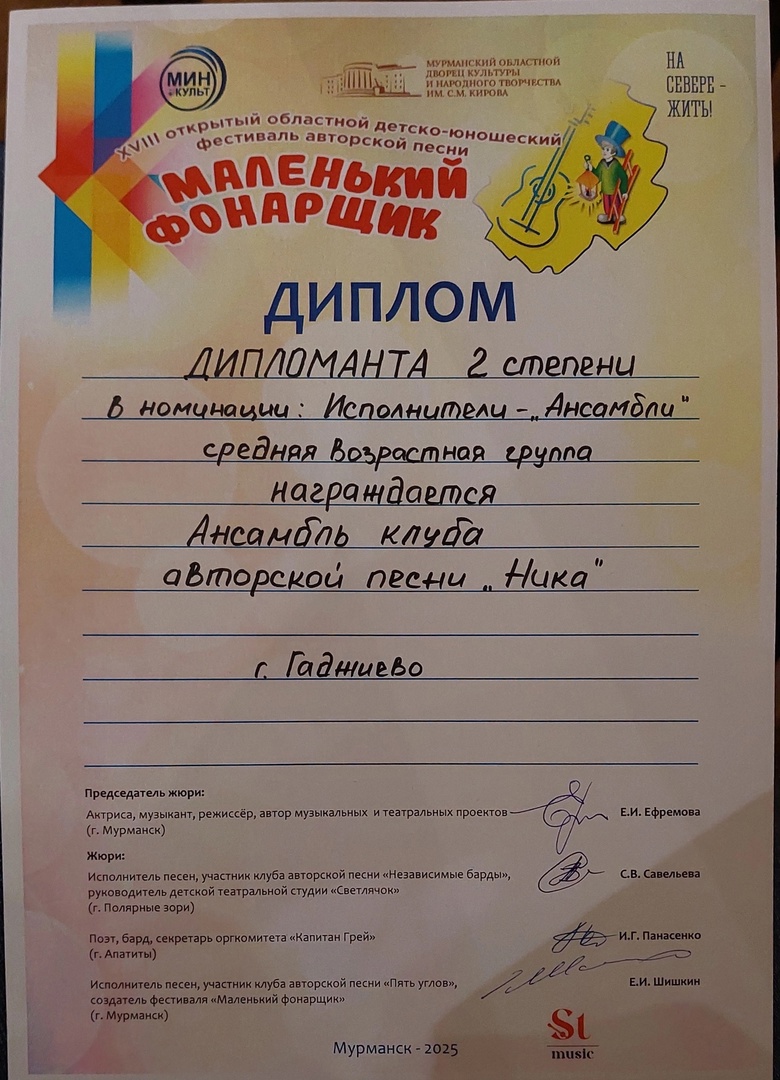 МИН
КУЛЬТ
МУРМАНСКИЙ ОБЛАСТНОЙ
ДВОРЕЦ КУЛЬТУРЫ
И НАРОДНОГО ТВОРЧЕСТВА
ИМ. С.М. КИРОВА
НА
СЕВЕРЕ -
ЖИТЬ!
XVIII открытый областной детско-юношеский
фестиваль авторской песни
МАЛЕНЬКИЙ
ФОНАРЩИК
ДИПЛОМ
ДИПЛОМАНТА 2 степени
в номинации: Исполнители - „Ансамбли"
средняя возрастная группа
награждается
Ансамбль клуба
авторской песни „Ника"
г. Гаджиево
Председатель жюри:
Актриса, музыкант, режиссёр, автор музыкальных и театральных проектов Е.И. Ефремова
(г. Мурманск)
Жюри:
Исполнитель песен, участник клуба авторской песни «Независимые барды», С.В. Савельева
руководитель детской театральной студии «Светлячок»
(г. Полярные зори)
Поэт, бард, секретарь оргкомитета «Капитан Грей» И.Г. Панасенко
(г. Апатиты)
Исполнитель песен, участник клуба авторской песни «Пять углов», Е.И. Шишкин
создатель фестиваля «Маленький фонарщик»
(г. Мурманск)
Мурманск - 2025
St
music